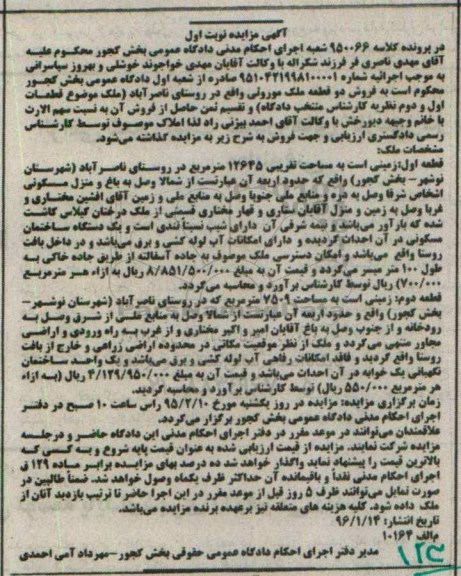 آگهی مزایده نوبت اول
در پرونده کلاسه ۹۵۰۰۶۶ شعبه اجرای احکام مدنی دادگاه عمومی بخش کجور محکوم علیه
آقای مهدی ناصری فر فرزند شکراله با وکالت آقایان مهدی خواجوند خوشلی و بهروز سپاسرانی
به موجب اجرائیه شماره ۹۵۱۰۴۲۱۹۹۸۱۰۰۰۰۱ صادره از شعبه اول دادگاه عمومی بخش کجور
محکوم است به فروش دو قطعه ملک موروثی واقع در روستای ناصرآباد (ملک موضوع قطعات
اول و دوم نظریه کارشناس منتخب دادگاه) و تقسیم ثمن حاصل از فروش آن به نسبت سهم الارث
با خانم وجیهه دیورخش با وکالت آقای احمد بیژنی راد لذا املاک موصوف توسط کارشناس
رسمی دادگستری ارزیابی و جهت فروش به شرح زیر به مزایده گذاشته می‌شود.
مشخصات ملک:
قطعه اول:زمینی است به مساحت تقریبی ۱۲۶۴۵ مترمربع در روستای ناصرآباد (شهرستان
نوشهر- بخش کجور) واقع که حدود اربعه آن عبارتست از شمالا وصل به باغ و منزل مسکونی
اشخاص شرقا وصل به دره و منابع ملی جنوبا وصل به منابع ملی و زمین آقای افشین مختاری و
غربا وصل به زمین و منزل آقایان ستاری و قهار مختاری قسمتی از ملک درختان گیلاس کاشت
شده که بارآور می‌باشد و نیمه شرقی آن دارای شیب نسبتا تندی است و یک دستگاه ساختمان
مسکونی در آن احداث گردیده و دارای امکانات آب لوله کشی و برق می‌باشد و در داخل بافت
روستا واقع می‌باشد و امکان دسترسی ملک موصوف به جاده آسفالته از طریق جاده خاکی به
طول ۱۰۰ متر میسر می‌گردد و قیمت آن به مبلغ ۸/۸۵۱/۵۰۰/۰۰۰ ریال به ازاء هر مترمربع
(۷۰۰/۰۰۰) ریال توسط کارشناس برآورد و محاسبه می‌گردد.
قطعه دوم: زمینی است به مساحت ۷۵۰۹ مترمربع که در روستای ناصرآباد (شهرستان نوشهر-
بخش کجور) واقع و حدود اربعه آن عبارتست از شمالا وصل به منابع ملی از شرق وصل به
رودخانه و از جنوب وصل به باغ آقایان امیر و اکبر مختاری و از غرب به راه ورودی و اراضی
مجاور منتهی می‌گردد و ملک از نظر موقعیت مکانی در محدوده اراضی زراعی و خارج از بافت
روستا واقع گردید و فاقد امکانات رفاهی آب لوله کشی و برق می‌باشد و یک واحد ساختمان
نگهبانی یک خوابه در آن احداث می‌باشد و قیمت آن به مبلغ ۴/۱۲۹/۹۵۰/۰۰۰ ریال (به ازاء
هر مترمربع ۵۵۰/۰۰۰ ریال) توسط کارشناس برآورد و محاسبه گردید.
زمان برگزاری مزایده: مزایده در روز یکشنبه مورخ ۹۵/۲/۱۰ راس ساعت ۱۰ صبح در دفتر
اجرای احکام مدنی دادگاه عمومی بخش کجور برگزار می‌گردد.
علاقمندان می‌توانند در موعد مقرر در دفتر اجرای احکام مدنی این دادگاه حاضر و درجلسه
مزایده شرکت نمایند. مزایده از قیمت ارزیابی شده به عنوان قیمت پایه شروع و به کسی که
بالاترین قیمت را پیشنهاد نماید واگذار خواهد شد ده درصد بهای مزایده برابر ماده ۱۲۹ ق
اجرای احکام مدنی نقدا و باقیمانده آن حداکثر ظرف یکماه وصول خواهد شد. ضمناً طالبین در
صورت تمایل می‌توانند ظرف ۵ روز قبل از موعد مقرر در این اجرا حاضر تا ترتیب بازدید آنان از
ملک داده شود. کلیه هزینه های متعلقه نیز برعهده برنده مزایده می‌باشد.
تاریخ انتشار: ۹۶/۱/۱۴
م‌الف ۱۰۱۶۴
مدیر دفتر اجرای احکام دادگاه عمومی حقوقی بخش کجور-مهرداد آمی احمدی